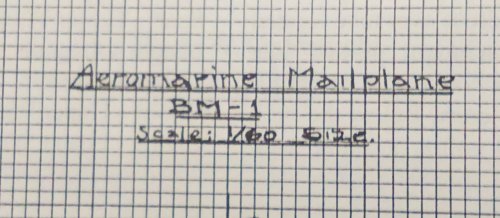 Aeromarine Mailplane
BM-1
Scale: 1/60 Size.